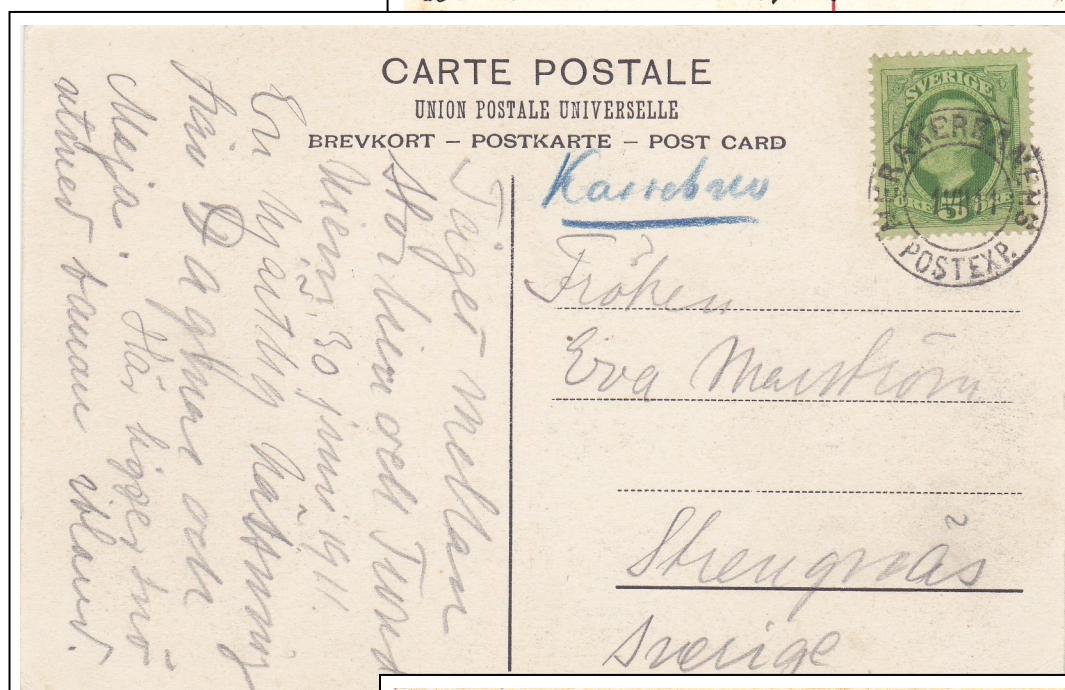 CARTE POSTALE
UNION POSTALE UNIVERSELLE
BREVKORT – POSTKARTE – POST CARD
SVERIGE
POSTEXP.
Fröken
Eva
Strengnäs
Sverige
Tåget mellan
Storlien och
30 juni 1911.
En hjärtlig hälsning
från Dagmar och
Maja. Här ligger snö
utmed banan ibland.